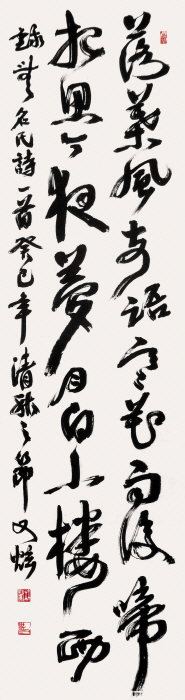 落葉風前語寒花雨後啼
相思今夜夢月白小樓西
錄無名氏詩一首癸巳年清秋之節